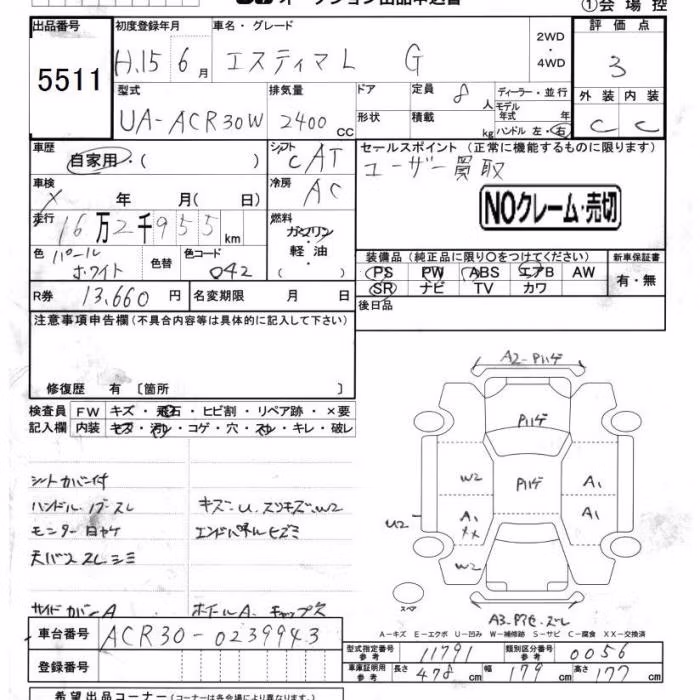 ①会場控
出品番号 初度登録年月 車名・グレード 2WD・4WD 評価点
5511 H.15 6月 エスティマL G 3
型式 排気量 ドア 定員 8人 ディーラー・並行 外装 内装
UA-ACR30W 2400cc 形状 積載 kg モデル年式 年 ハンドル 左・右 C C
車歴 自家用・( ) シフト CAT セールスポイント (正常に機能するものに限ります)
ユーザー買取
車検 × 年 月( 日) 冷房 AC
NOクレーム・売切
走行 16万2千955km 燃料 ガソリン・軽油・( )
色 パールホワイト 色替 色コード 042
装備品(純正品に限り○をつけてください) 新車保証書
PS PW ABS エアB AW 有・無
SR ナビ TV カワ
R券 13,660円 名変期限 月 日 後日品
注意事項申告欄(不具合内容等は具体的に記入して下さい)
修復歴 有 〔箇所 〕
検査員記入欄 FW キズ・飛石・ヒビ割・リペア跡・×要
内装 キズ・汚レ・コゲ・穴・スレ・キレ・破レ
シートカバー付
ハンドル・ノブ・スレ キズ・U.スリキズ.W2
モニター日ヤケ エンドパネルヒズミ
天バリスレシミ
サイドカバーA ホイールA.キャップ欠
A2-Pハゲ
Pハゲ
W2 Pハゲ A1
U2 A1 XX A1
W2
スペア
A-キズ E-エクボ U-凹み W-補修跡 S-サビ C-腐食 XX-交換済
車台番号 ACR30-0239943
型式指定番号参考 11791 類別区分番号参考 0056
登録番号
車庫証明用参考 長さ 478 幅 179 高さ 177 cm
希望出品コーナー(コーナーは各会場により異なります)